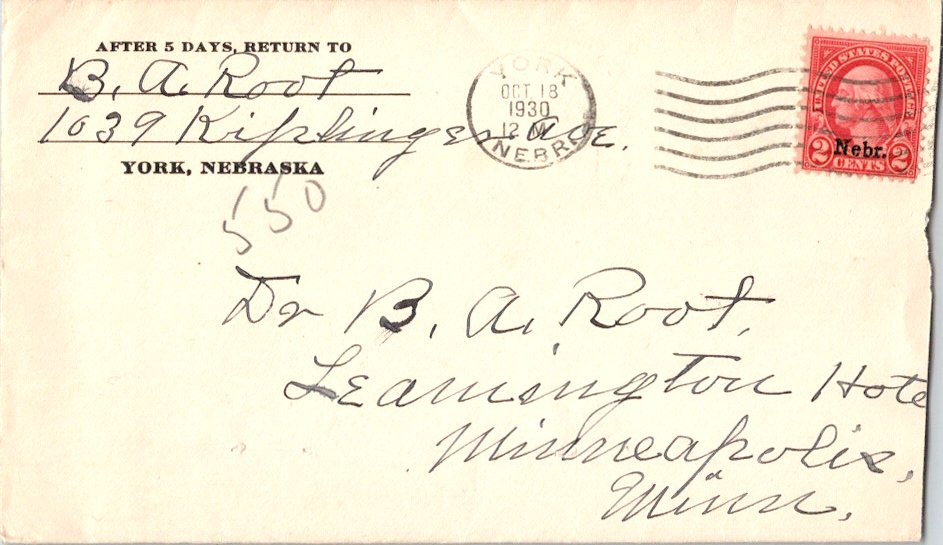 AFTER 5 DAYS, RETURN TO
B. A. Root
1039 Kiplinger Ave.
YORK, NEBRASKA
YORK
OCT 18
1930
12 M
NEBR.
UNITED STATES POSTAGE
2 Nebr. 2
CENTS
550
Dr B. A. Root,
Leamington Hote
Minneapolis,
Minn.